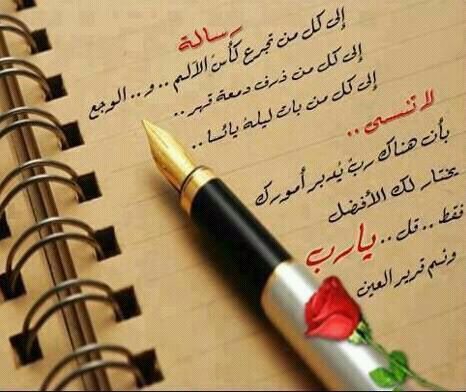 رسالة
إلى كل من تجرع كأس الألم .. و.. الوجع
إلى كل من ذرف دمعة قهر ..
إلى كل من بات ليله يائسا ..
لا تنسى ..
بأن هناك رب يُدبر أمورك
يختار لك الأفضل
فقط .. قل .. يارب
ونم قرير العين